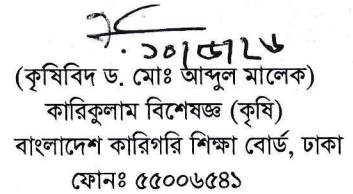 ১০/৫/২৬
(কৃষিবিদ ড. মোঃ আব্দুল মালেক)
কারিকুলাম বিশেষজ্ঞ (কৃষি)
বাংলাদেশ কারিগরি শিক্ষা বোর্ড, ঢাকা
ফোনঃ ৫৫০০৬৫৪১